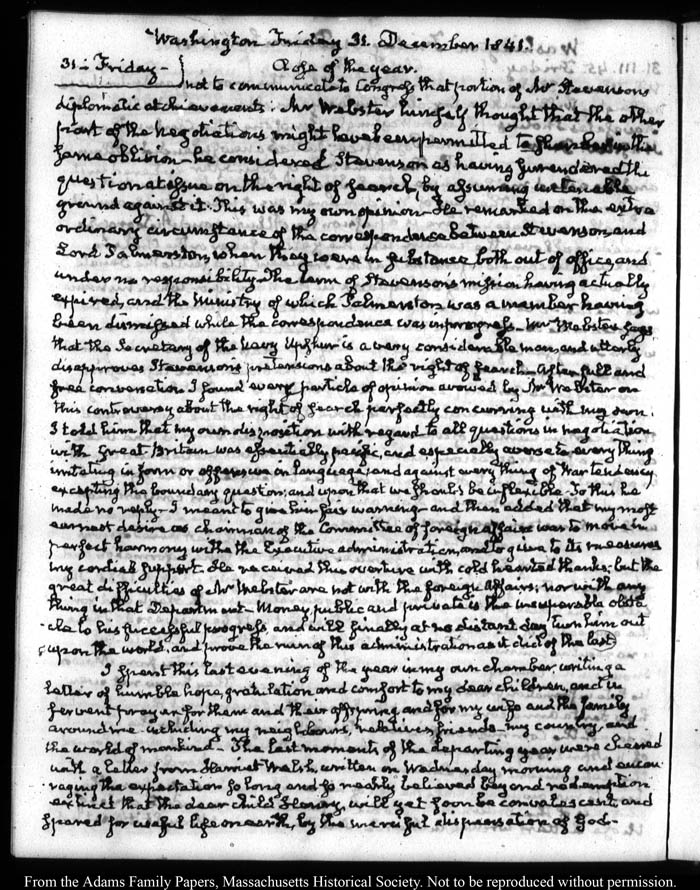 Washington Friday 31. December 1841.
31 - Friday - } Age of the year.
not to communicate to Congress that portion of Mr Stevenson's
diplomatic atchievements. Mr Webster himself thought that the other
part of the negotiations might have been permitted to share in the
same oblivion - he considered Stevenson as having surrendered the
question at issue on the right of search, by assuming untenable
ground against it. This was my own opinion - He remarked on the extra
ordinary circumstance of the correspondence between Stevenson and
Lord Palmerston, when they were in substance both out of office, and
under no responsibility. The term of Stevenson's mission having actually
expired, and the Ministry of which Palmerston was a member having
been dismissed while the correspondence was in progress. Mr Webster says
that the Secretary of the Navy Upshur is a very considerable man, and utterly
disapproves Stevenson's pretensions about the right of search - After full and
free conversation I found every particle of opinion avowed by Mr Webster on
this controversy about the right of search perfectly concurring with my own.
I told him that my own disposition with regard to all questions in negotiation
with Great-Britain was essentially pacific, and especially averse to every thing
irritating in form or offensive in language; and against every thing of War tendency
excepting the boundary question, and upon that we should be inflexible. To this he
made no reply - I meant to give him fair warning - and then added that my most
earnest desire as chairman of the Committee of foreign affairs was to move in
perfect harmony with the Executive administration, and to give to its measures
my cordial support. He received this overture with cold hearted thanks; but the
great difficulties of Mr Webster are not with the foreign Affairs; nor with any
thing in that Department - Money, public and private is the insuperable obsta
-cle to his successful progress, and will finally at no distant day turn him out
upon the world, and prove the ruin of this administration as it did of the last
I spent this last evening of the year in my own chamber, writing a
letter of humble hope, gratulation and comfort to my dear children, and in
fervent prayer for them and their offspring and for my wife and the family
around me - including my neighbours, relatives, friends - my country, and
the world of mankind - The last moments of the departing year were cheered
with a letter from Harriet Welsh, written on Wednesday morning and encou
raging the expectation so long and so nearly believed beyond redemption
extinct that the dear child Fanny, will yet soon be convalescent, and
spared for useful life on earth, by the merciful dispensation of God -
From the Adams Family Papers, Massachusetts Historical Society. Not to be reproduced without permission.